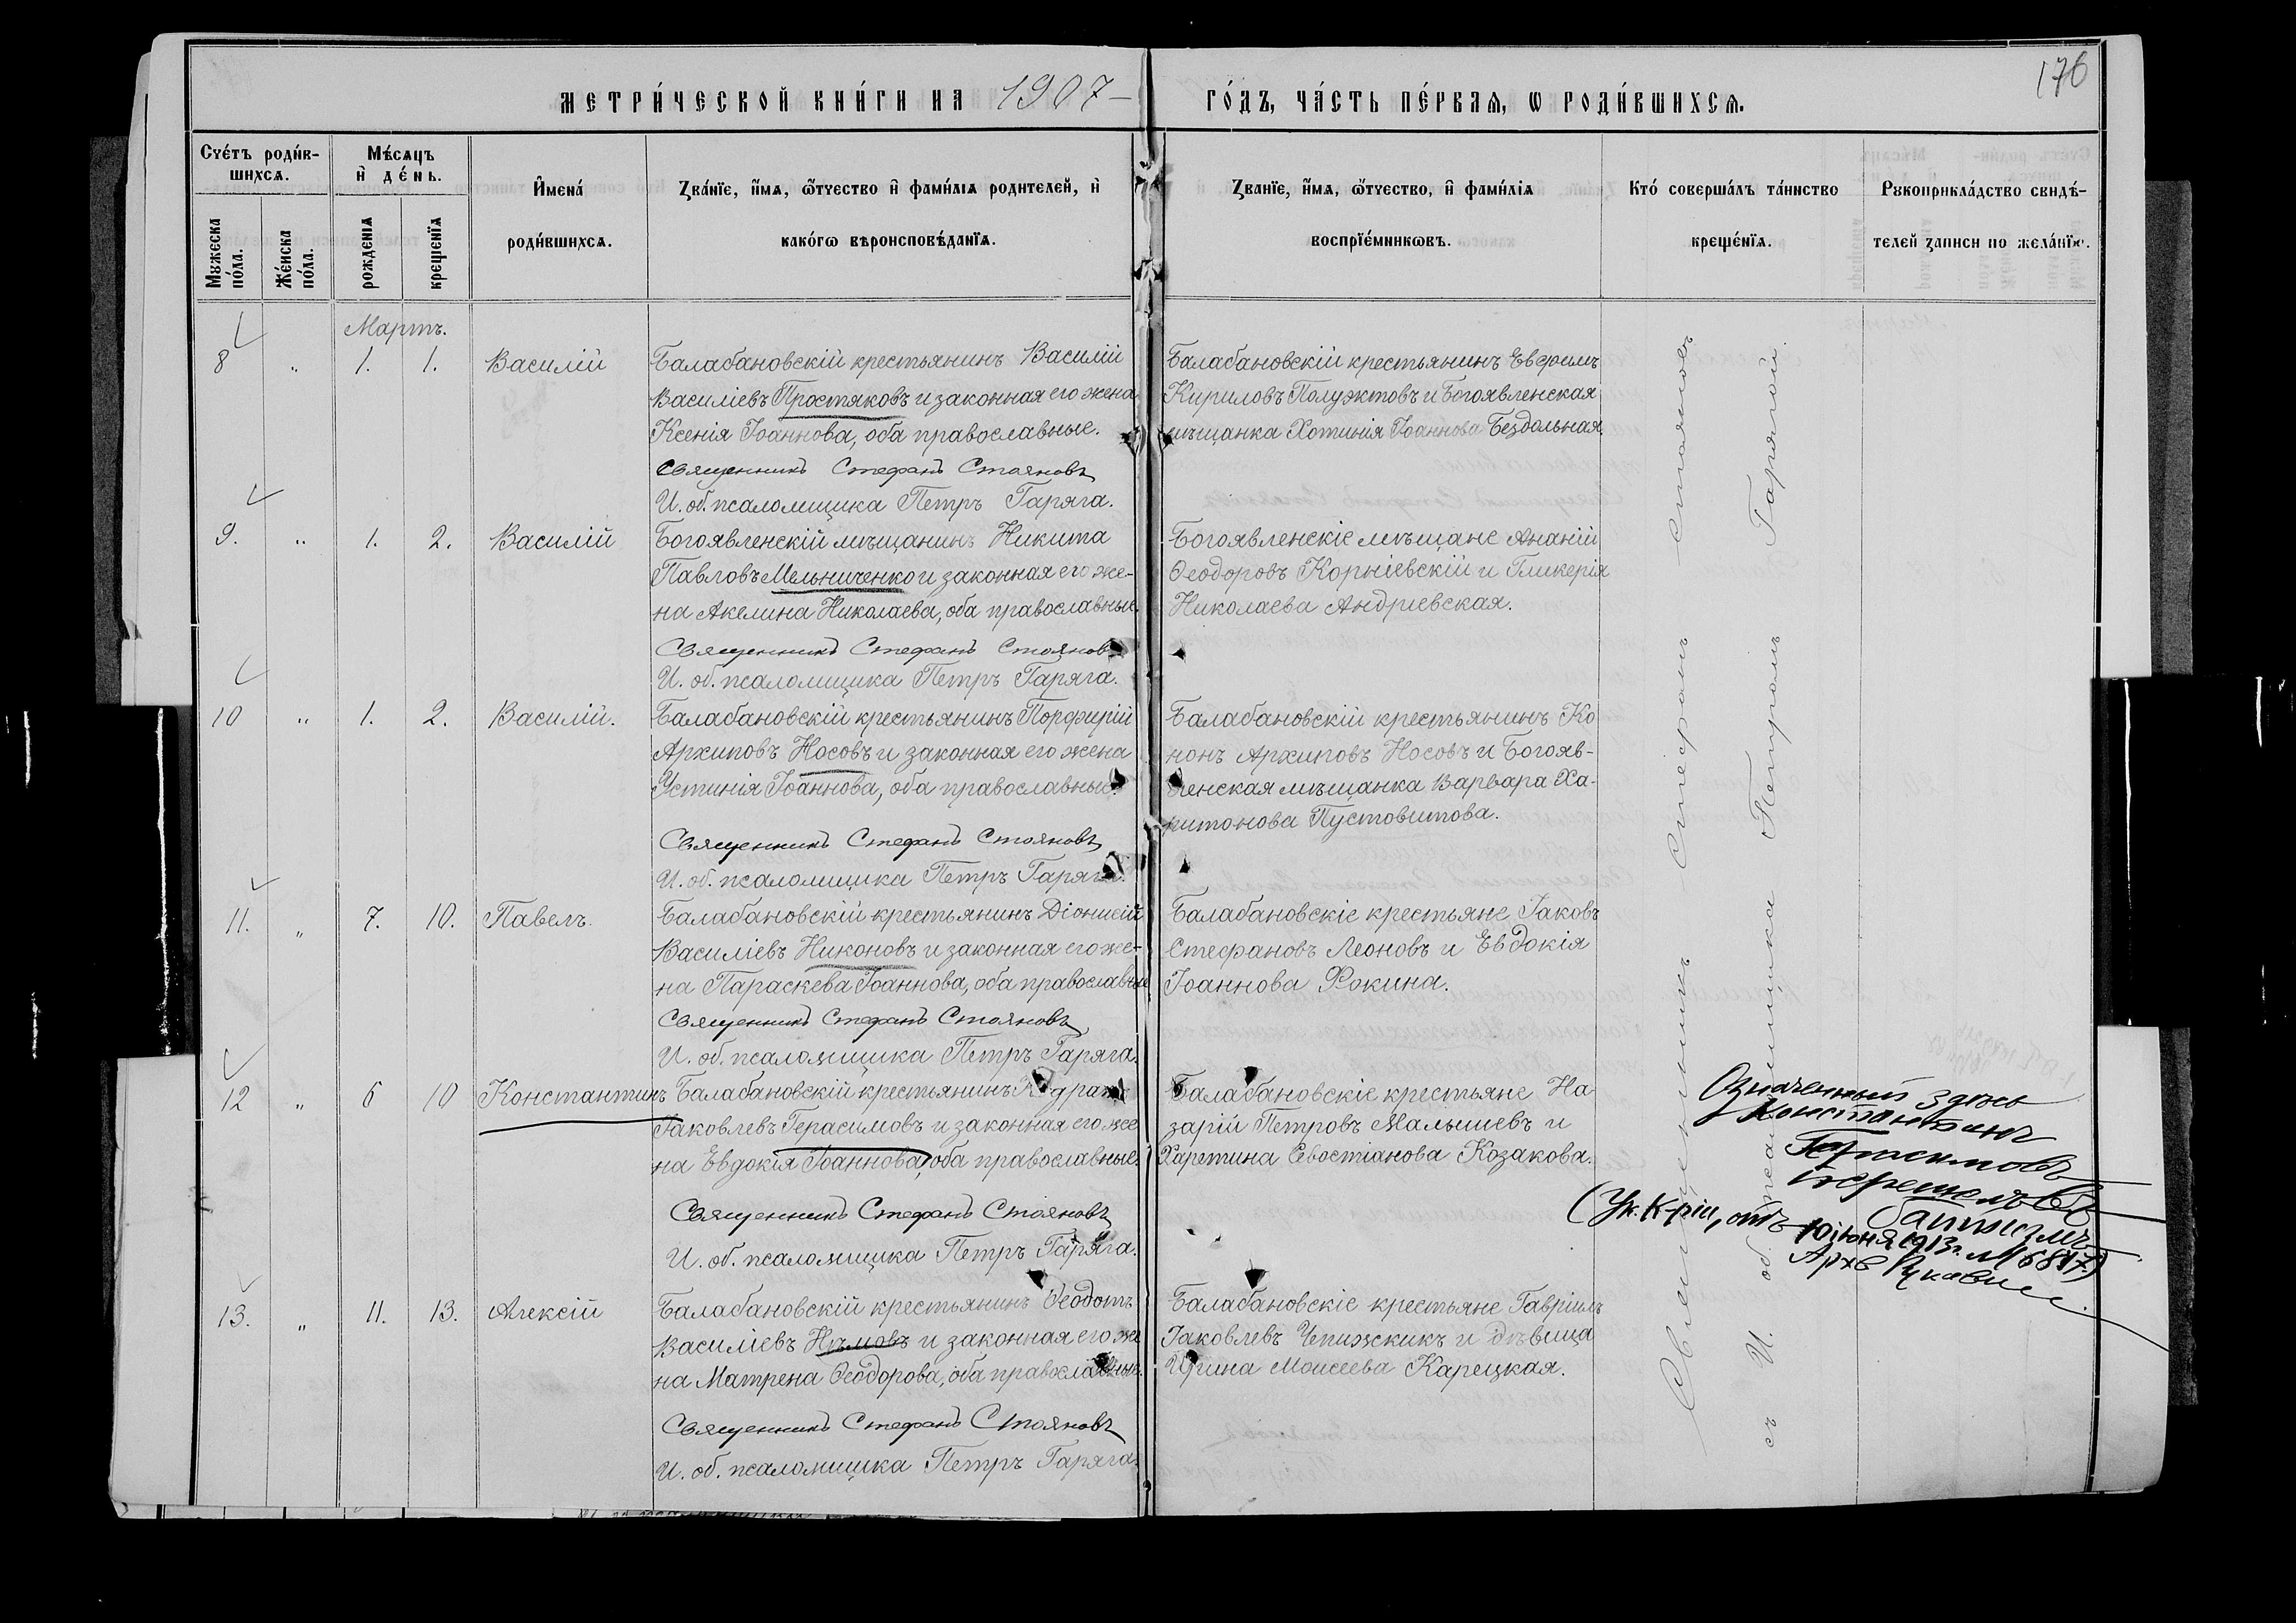 МЕТРИ́ЧЕСКОЙ КНИ́ГИ НА 1907 ГО́ДЪ, ЧА́СТЬ ПЕ́РВАѦ, Ѡ РОДИ́ВШИХСѦ.
176
Счетъ родив-
шихся.
Мѣсяцъ
и день.
Мужеска
пола.
Женска
пола.
рожденія
крещенія
Имена
родившихся.
Званіе, имя, отчество и фамилія родителей, и
какого вѣроисповѣданія.
Званіе, имя, отчество, и фамилія
воспріемниковъ.
Кто совершалъ таинство
крещенія.
Рукоприкладство свидѣ-
телей записи по желанію.
Мартъ.
8 " 1. 1. Василій
Балабановскій крестьянинъ Василій
Василіевъ Простяковъ и законная его жена
Ксенія Іоаннова, оба православные.
Священникъ Стефанъ Стояновъ
И. об. псаломщика Петръ Гаряга.
Балабановскій крестьянинъ Евфимъ
Кириловъ Полуэктовъ и Богоявленская
мѣщанка Хотинія Іоаннова Бездольная.
9. " 1. 2. Василій
Богоявленскій мѣщанинъ Никита
Павловъ Мельниченко и законная его же-
на Акелина Николаева, оба православные.
Священникъ Стефанъ Стояновъ
И. об. псаломщика Петръ Гаряга.
Богоявленскіе мѣщане Ананій
Ѳеодоровъ Корніевскій и Гликерія
Николаева Андріевская.
10 " 1. 2. Василій.
Балабановскій крестьянинъ Порфирій
Архиповъ Носовъ и законная его жена
Устинія Іоаннова, оба православные.
Священникъ Стефанъ Стояновъ
И. об. псаломщика Петръ Гаряга.
Балабановскій крестьянинъ Ко
нонъ Архиповъ Носовъ и Богояв-
ленская мѣщанка Варвара Ха-
ритонова Пустовитова.
11. " 7. 10. Павелъ.
Балабановскій крестьянинъ Діонисій
Василіевъ Никоновъ и законная его же-
на Параскева Іоаннова, оба православные
Священникъ Стефанъ Стояновъ
И. об. псаломщика Петръ Гаряга.
Балабановскіе крестьяне Іаковъ
Стефановъ Леоновъ и Евдокія
Іоаннова Фокина.
12 " 6 10 Константинъ
Балабановскій крестьянинъ
Іаковлевъ Герасимовъ и законная его же
на Евдокія Іоаннова, оба православные.
Священникъ Стефанъ Стояновъ
И. об. псаломщика Петръ Гаряга.
Балабановскіе крестьяне На
зарій Петровъ Малышевъ и
Харетина Севостіанова Козакова.
Означенный здѣсь
Константинъ
Герасимовъ
перешелъ въ
баптизмъ
(Ук. К-ріи, отъ 10 іюня 1913г. № 6817.)
13. " 11. 13. Алексій
Балабановскій крестьянинъ Ѳеодотъ
Василіевъ Нѣмовъ и законная его же
на Матрена Ѳеодорова, оба православные.
Священникъ Стефанъ Стояновъ
И. об. псаломщика Петръ Гаряга.
Балабановскіе крестьяне Гавріилъ
Іаковлевъ и дѣвица
Ирина Моисеева Карецкая.
Священникъ Стефанъ Стояновъ
съ И. об. псаломщика Петромъ Гарягой.